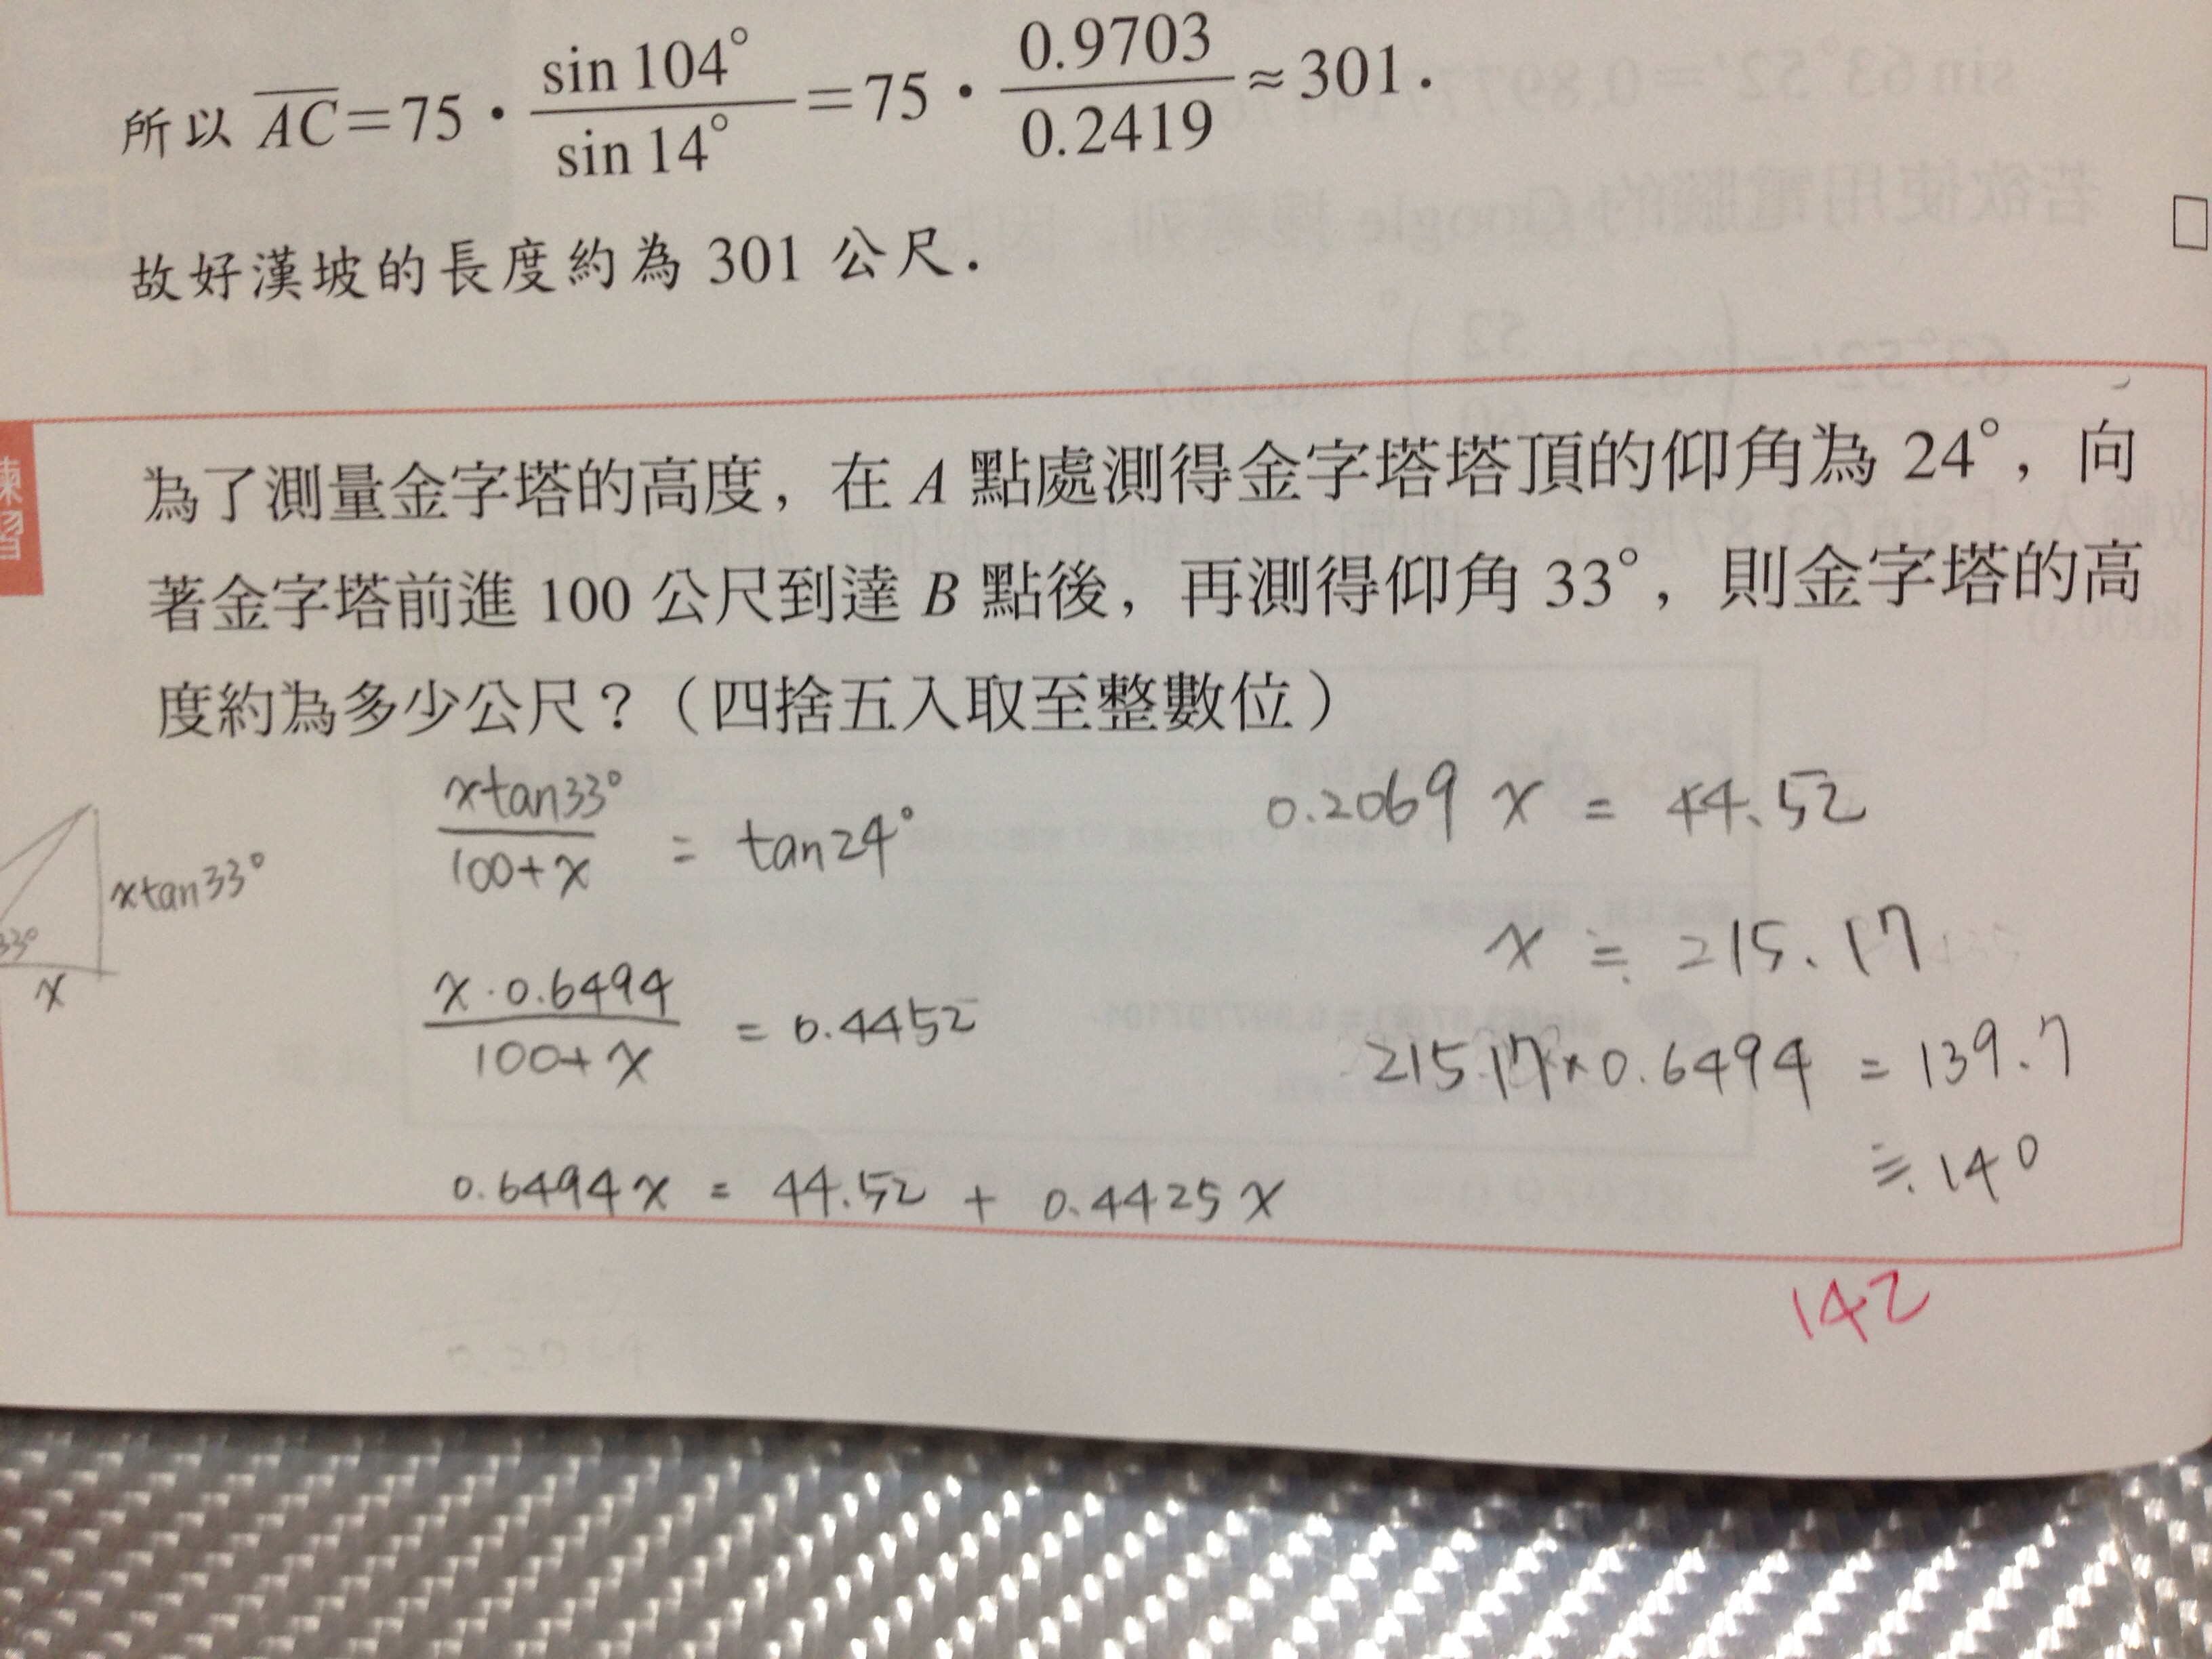 所以 AC=75·sin 104°/sin 14°=75·0.9703/0.2419≈301.
故好漢坡的長度約為 301 公尺.
練習
為了測量金字塔的高度,在 A 點處測得金字塔塔頂的仰角為 24°,向
著金字塔前進 100 公尺到達 B 點後,再測得仰角 33°,則金字塔的高
度約為多少公尺?(四捨五入取至整數位)
xtan33°
33°
x
xtan33°/100+x = tan24°
x·0.6494/100+x = 0.4452
0.6494x = 44.52 + 0.4425x
0.2069 x = 44.52
x ≒ 215.17
215.17×0.6494 = 139.7
≒ 140
142